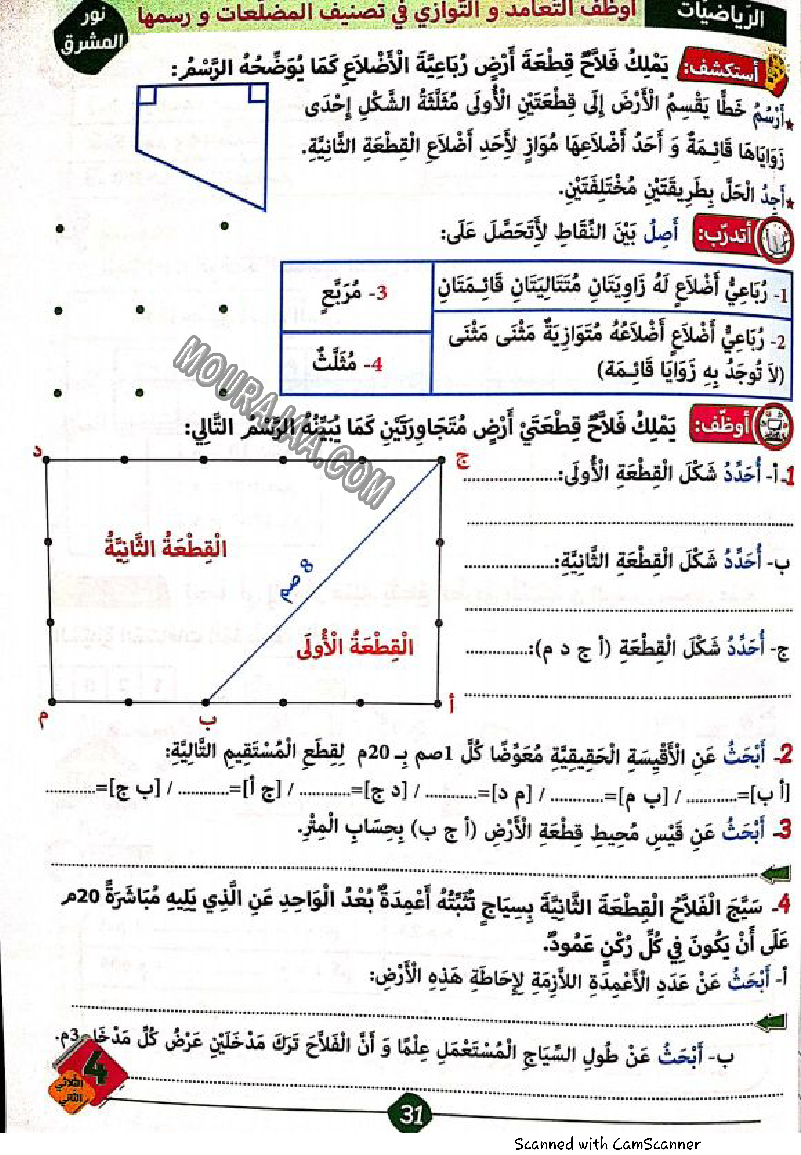 الرّياضيّات
أوظّف التّعامد و التّوازي في تصنيف المضلّعات و رسمها
نور المشرق
أستكشف: يَمْلِكُ فَلاَّحٌ قِطْعَةَ أَرْضٍ رُبَاعِيَّةَ الْأَضْلاَعِ كَمَا يُوَضِّحُهُ الرَّسْمُ:
*أَرْسُمُ خَطًّا يَقْسِمُ الْأَرْضَ إِلَى قِطْعَتَيْنِ الْأُولَى مُثَلَّثَةُ الشَّكْلِ إِحْدَى
زَوَايَاهَا قَائِمَةٌ وَ أَحَدُ أَضْلاَعِهَا مُوَازٍ لِأَحَدِ أَضْلاَعِ الْقِطْعَةِ الثَّانِيَّةِ.
*أَجِدُ الْحَلَّ بِطَرِيقَتَيْنِ مُخْتَلِفَتَيْنِ.
أتدرّب: أَصِلُ بَيْنَ النِّقَاطِ لِأَتَحَصَّلَ عَلَى:
1- رُبَاعِيُّ أَضْلاَعٍ لَهُ زَاوِيَتَانِ مُتَتَالِيَتَانِ قَائِمَتَانِ
2- رُبَاعِيُّ أَضْلاَعٍ أَضْلاَعُهُ مُتَوَازِيَةٌ مَثْنَى مَثْنَى
(لاَ تُوجَدُ بِهِ زَوَايَا قَائِمَة)
3- مُرَبَّعٍ
4- مُثَلَّثٌ
MOURAJAA.COM
أوظّف: يَمْلِكُ فَلاَّحٌ قِطْعَتَيْ أَرْضٍ مُتَجَاوِرَتَيْنِ كَمَا يُبَيِّنُهُ الرَّسْمُ التَّالِي:
1-أ- أُحَدِّدُ شَكْلَ الْقِطْعَةِ الْأُولَى:.....................
ب- أُحَدِّدُ شَكْلَ الْقِطْعَةِ الثَّانِيَّةِ:.....................
ج- أُحَدِّدُ شَكْلَ الْقِطْعَةِ (أ ج د م):..............
د
ج
الْقِطْعَةُ الثَّانِيَّةُ
8 صم
الْقِطْعَةُ الْأُولَى
أ
ب
م
2- أَبْحَثُ عَنِ الْأَقْيِسَةِ الْحَقِيقِيَّةِ مُعَوِّضًا كُلَّ 1صم بِـ 20م لِقِطَعِ الْمُسْتَقِيمِ التَّالِيَّةِ:
[أ ب]=............ / [ب م]=............ / [م د]=............ / [د ج]=............ / [ج أ]=............ / [ب ج]=............
3- أَبْحَثُ عَنِ قَيْسِ مُحِيطِ قِطْعَةِ الْأَرْضِ (أ ج ب) بِحِسَابِ الْمِتْرِ.
4- سَيَّجَ الْفَلاَّحُ الْقِطْعَةَ الثَّانِيَّةَ بِسِيَاجٍ تُثَبِّتُهُ أَعْمِدَةٌ بُعْدُ الْوَاحِدِ عَنِ الَّذِي يَلِيهِ مُبَاشَرَةً 20م
عَلَى أَنْ يَكُونَ فِي كُلِّ رُكْنٍ عَمُودٌ.
أ- أَبْحَثُ عَنْ عَدَدِ الْأَعْمِدَةِ اللاَّزِمَةِ لِإِحَاطَةِ هَذِهِ الْأَرْضِ:
ب- أَبْحَثُ عَنْ طُولِ السِّيَاجِ الْمُسْتَعْمَلِ عِلْمًا وَ أَنَّ الْفَلاَّحَ تَرَكَ مَدْخَلَيْنِ عَرْضُ كُلِّ مَدْخَلٍ 3م.
4
الثلاثي الثاني
31
Scanned with CamScanner